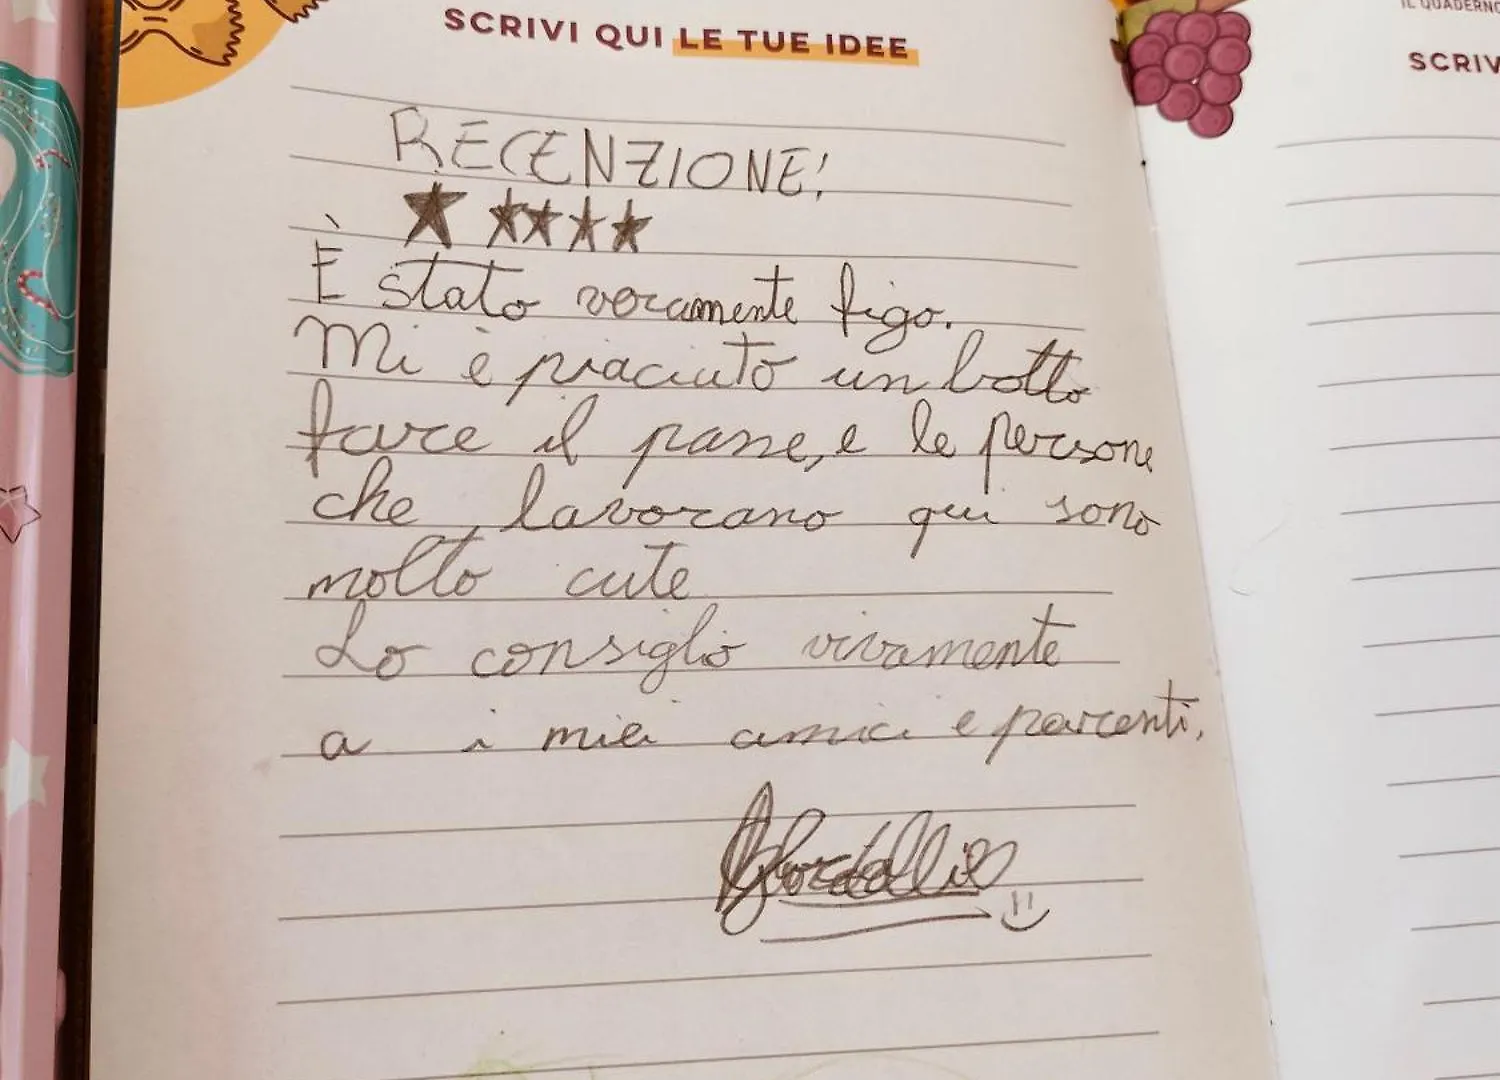 SCRIVI QUI LE TUE IDEE
RECENZIONE!
★ ★★★★
È stato veramente figo.
Mi è piaciuto un botto
fare il pane, e le persone
che lavorano qui sono
molto cute
Lo consiglio vivamente
a i miei amici e parenti.
IL QUADERNO
SCRIV